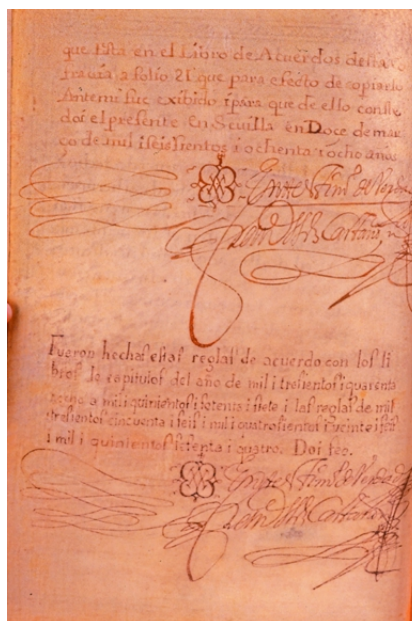 que esta en el Libro de Acuerdos desta Co
fradia a folio 21 que para efecto de copiarlo
Antemi fue exibido i para que de ello conste
doi el presente en Sevilla en Doce de mar
ço de mil i seissientos i ochenta i ocho años
En testimº de Verdad
Fueron hechas estas reglas de acuerdo con los li
bros de capitulos del año de mil i tresientos i quarenta
i mil i quinientos i setenta i siete i las reglas de mil
i tresientos cincuenta i seis i mil i quatrosientos i veinte i seis
i mil i quinientos setenta i quatro. Doi fee.
En testimº de Verdad